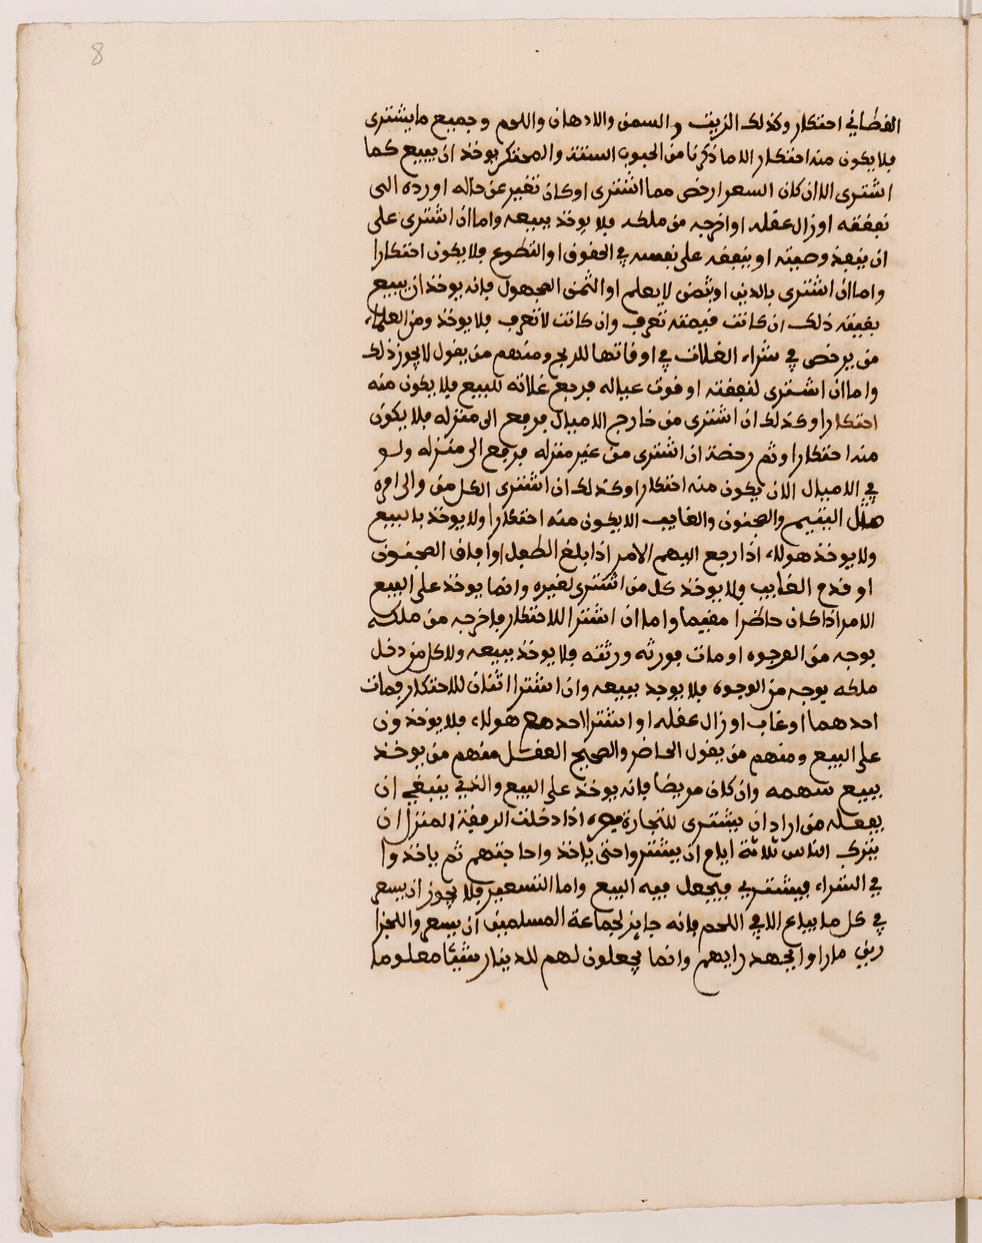 8
القطاني احتكار وكذلك الزيت والسمن والادهان واللحم وجميع ما يشترى
فلا يكون منه احتكار الا ما ذكرنا من الحبوب الستة والمحتكر يوخذ ان يبيع كما
اشترى الا ان كان السعر ارخص مما اشترى او كان تغير عن حاله او رده الى
نفقته او زال عقله او اخرجه من ملكه فلا يوخذ ببيعه واما ان اشترى على
ان ينفذ وصيته او ينفقه على نفسه في الحقوق او التطوع فلا يكون احتكارا
واما ان اشترى بالدين او بثمن لا يعلم او الثمن المجهول فانه يوخذ ان يبيع
بقيمته ذلك ان كانت قيمته تعرف وان كانت لا تعرف فلا يوخذ ومن العلماء
من يرخص في شراء الغلات في اوقاتها للربح ومنهم من يقول لا يجوز ذلك
واما ان اشترى لنفقته او قوت عياله فرفع غلاته للبيع فلا يكون منه
احتكارا وكذلك ان اشترى من خارج الاميال فرفع الى منزله فلا يكون
منه احتكارا وثم رخصة ان اشترى من غير منزله فرفع الى منزله ولو
في الاميال الا ان يكون منه احتكارا وكذلك ان اشترى الكل من والى امره
مثل اليتيم والمجنون والغايب الا يكون منه احتكارا ولا يوخذ بالبيع
ولا يوخذ هولاء اذا رجع اليهم الامر اذا بلغ الطفل او افاق المجنون
او قدم الغايب ولا يوخذ كل من اشترى لغيره وانما يوخذ على البيع
الامر اذا كان حاضرا مقيما واما ان اشترا للاحتكار فاخرجه من ملكه
بوجه من الوجوه او مات فورثه ورثته فلا يوخذ ببيعه ولا كل من دخل
ملكه بوجه من الوجوه فلا يوجد ببيعه وان اشترا اثنان للاحتكار فمات
احدهما او غاب او زال عقله او اشترا لاحدهم هولاء فلا يوخذون
على البيع ومنهم من يقول الحاضر والصحيح العقل منهم من يوخذ
ببيع سهمه وان كان مريضا فانه يوخذ على البيع والذي ينبغي ان
يفعله من اراد ان يشترى للتجارة اذا دخلت الرفقة المنزل ان
يترك الناس ثلاثة ايام ان يشتروا حتى ياخذوا حاجتهم ثم ياخذوا
في الشراء فيشتري فيجعل فيه البيع واما التسعير فلا يجوز ان يسعر
في كل ما يباع الا في اللحم فانه جايز لجماعة المسلمين ان يسعروا للجزا
رين ما راوا بجهد رايهم وانما يجعلون لهم للدينار شيئا معلوما